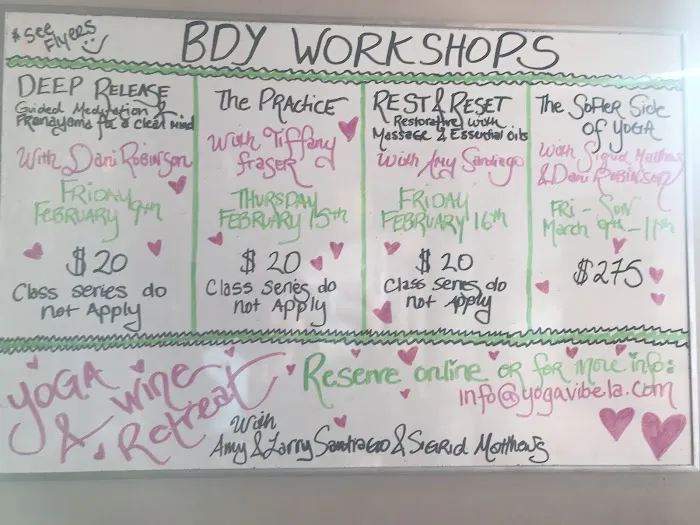 * See
Flyers
BDY WORKSHOPS
DEEP RELEASE
Guided Meditation &
Pranayama for a clear Mind
With Dani Robinson
FRIDAY
FEBRUARY 9th
$20
Class series do
not Apply
The PRACTICE
With Tiffany
Fraser
THURSDAY
FEBRUARY 15th
$20
Class series do
not Apply
REST & RESET
Restorative with
Massage & Essential Oils
with Amy Santiago
FRIDAY
FEBRUARY 16th
$20
Class series do
not Apply
The Softer Side
of YOGA
with Sigrid Matthews
& Dani Robinson
FRI - SUN
March 9th - 11th
$275
YOGA
& Wine
Retreat
With
Amy & Larry Santiago & Sigrid Matthews
Reserve online or for more info:
info@yogavibela.com